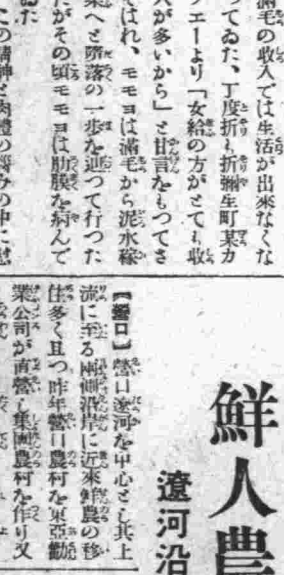 滿毛の收入では生活が出來なくな
つてゐた、丁度折も折彌生町某カ
フエーより「女給の方がとても收
入が多いから」と甘言をもつてさ
そはれ、モモヨは滿毛から泥水稼
業へと墮落の一歩を辿つて行つた
だがその頃モモヨは肋膜を病んで
ゐた
この精神と肉體の惱みの中に
鮮人農
遼河沿
【營口】營口遼河を中心とし其上
流に至る兩側沿岸に近來鮮農の移
住多く且つ昨年營口農村を東亞勸
業公司が直營し集團農村を作り又